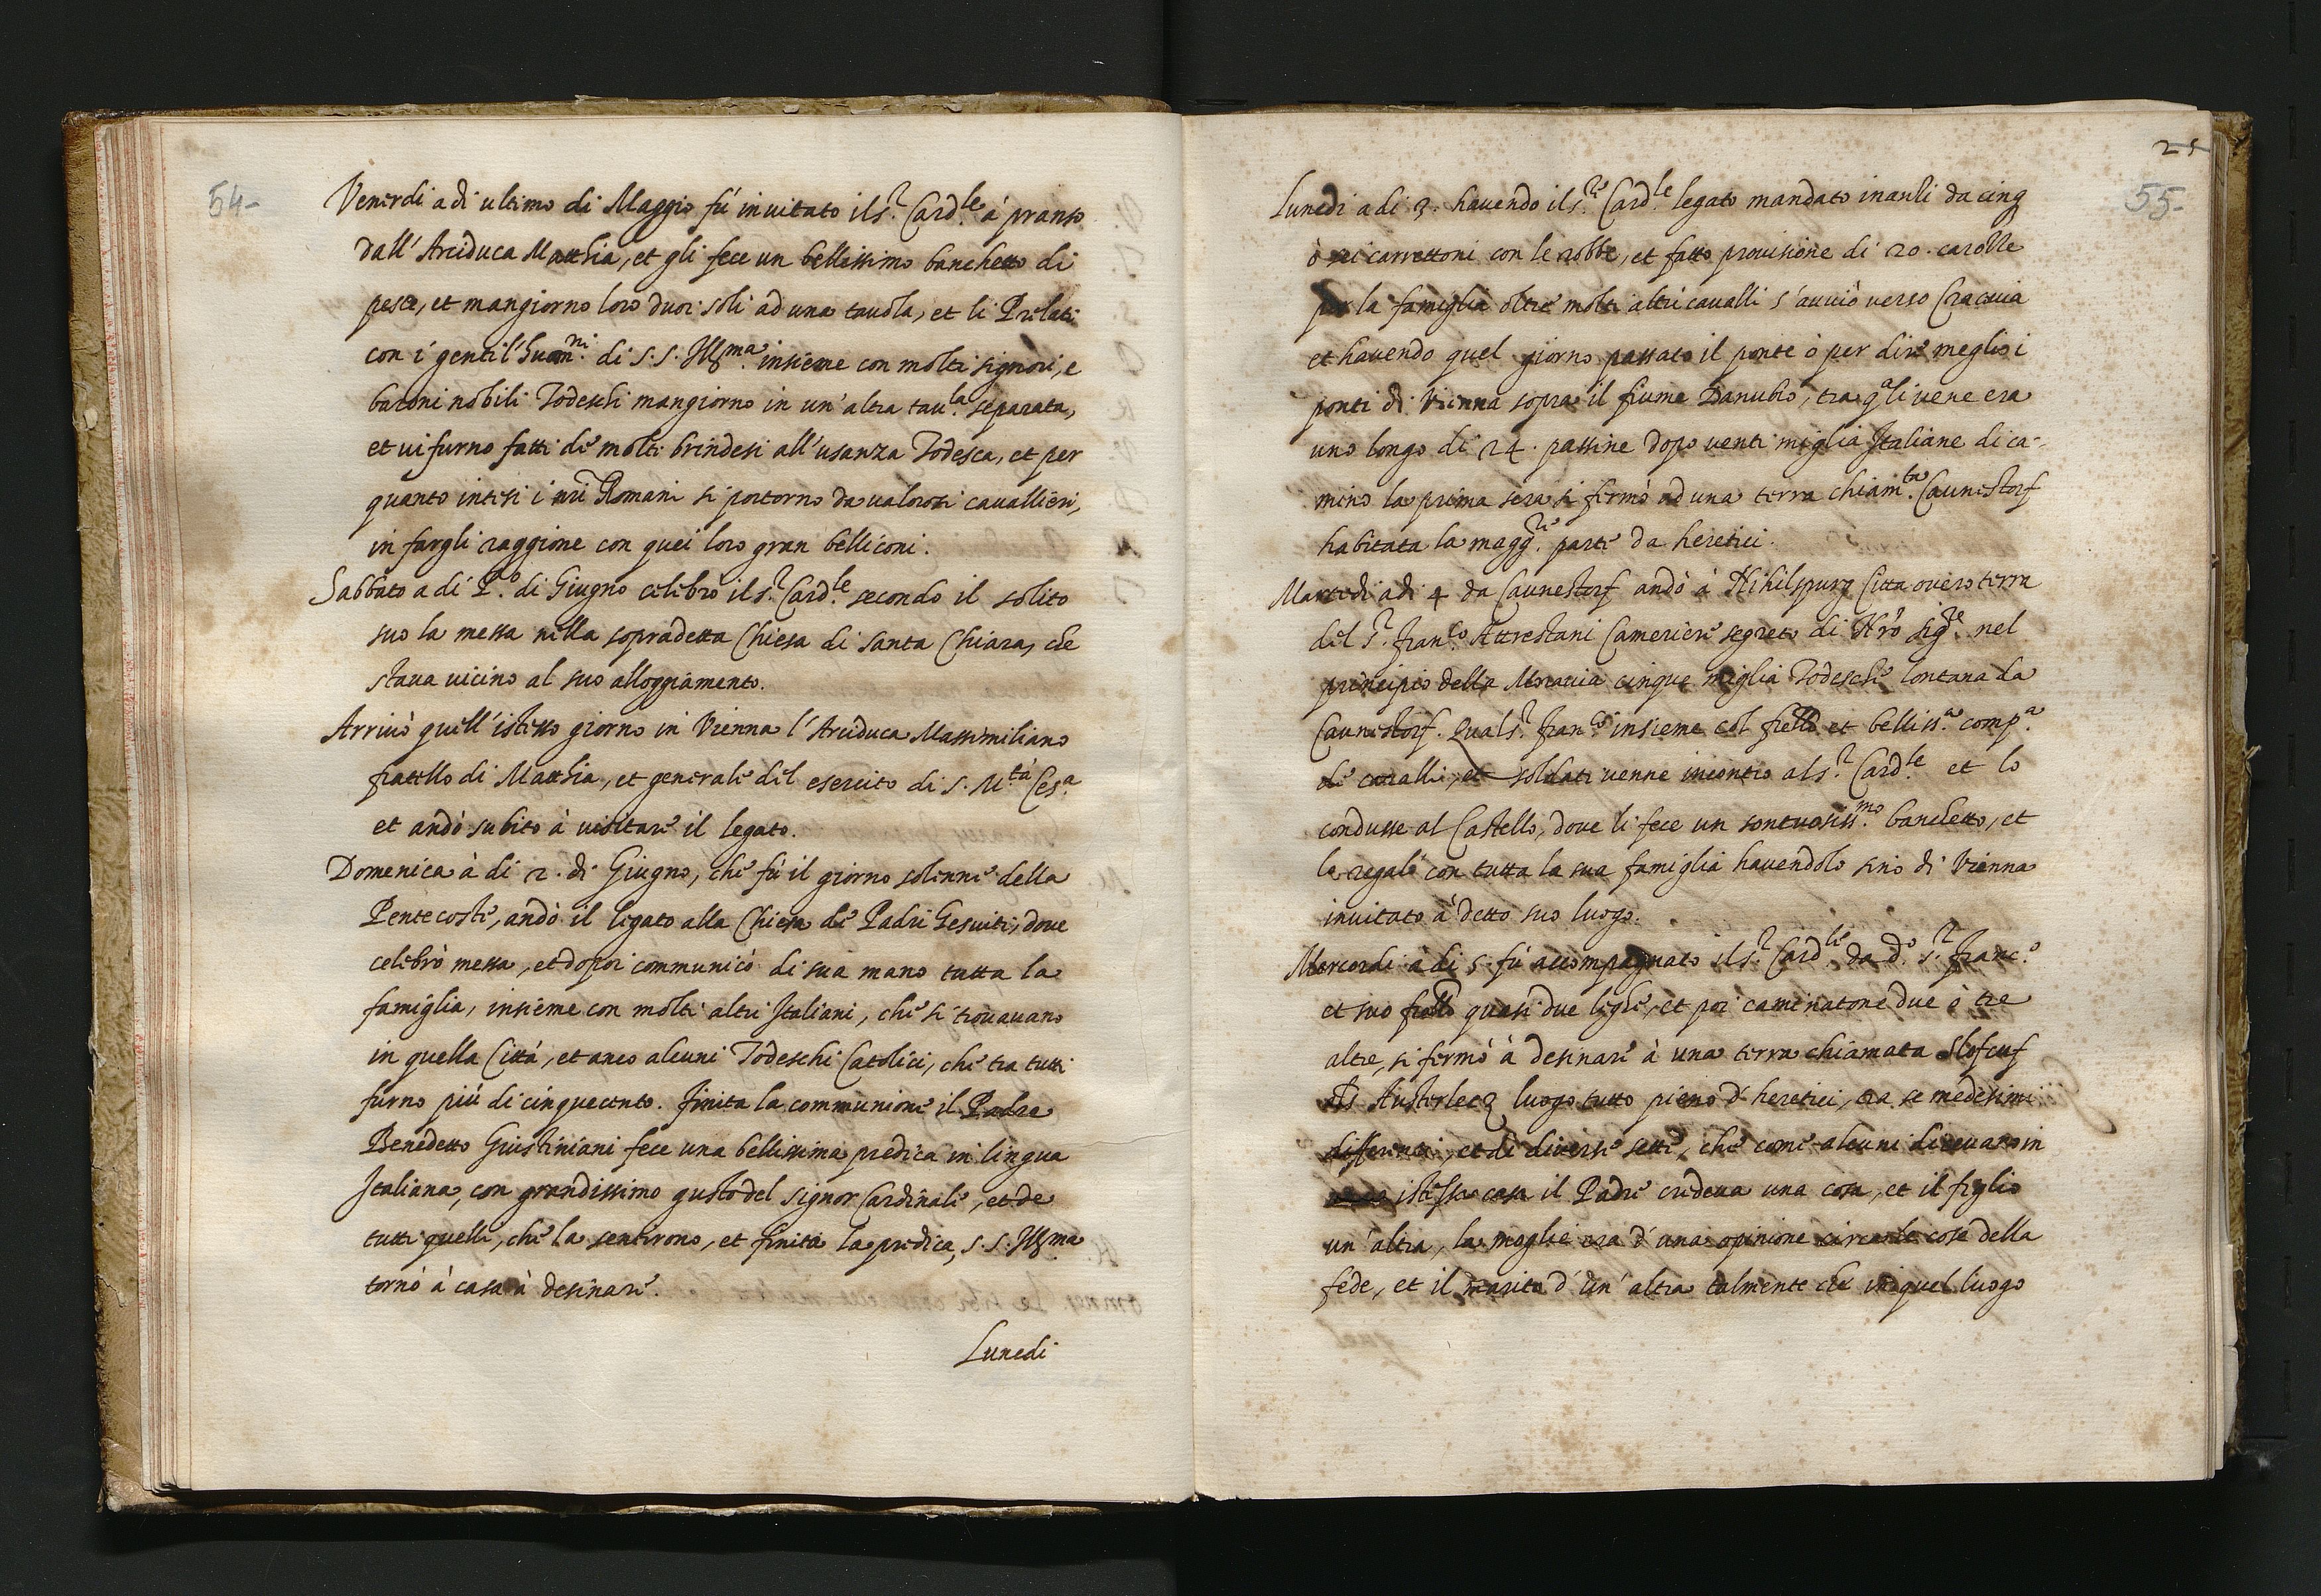 54-
Venerdi a di ultimo di Maggio fù inuitato il S.r Card.le à pranso
dall'Arciduca Matthia, et gli fece un bellissimo banchetto di
pesce, et mangiorno loro duoi soli ad una tauola, et li Prelati
con i gentil'huom.ni di S. S. Ill.ma insieme con molti signori, e
baroni nobili Todeschi mangiorno in un'altra tau.la separata,
et ui furno fatti de molti brindesi all'usanza Todesca, et per
quanto intesi i nri Romani si portorno da ualorosi cauallieri,
in fargli raggione con quei loro gran belliconi.
Sabbato a di P.o di Giugno celebrò il S.r Card.le secondo il solito
suo la messa nella sopradetta Chiesa di santa Chiara, che
staua uicino al suo alloggiamento.
Arriuò quell'istesso giorno in Vienna l'Arciduca Massimiliano
fratello di Matthia, et generale del esercito di S. M.tà Ces.a
et andò subito à uisitare il legato.
Domenica à di 2. di Giugno, che fù il giorno solenne della
Pentecoste, andò il legato alla Chiesa de Padri Gesuiti, doue
celebrò messa, et dopoi communicò di sua mano tutta la
famiglia, insieme con molti altri Italiani, che si trouauano
in quella Città, et anco alcuni Todeschi Catolici, che tra tutti
furno più di cinquecento. finita la communione il Padre
Benedetto Giustiniani fece una bellissima predica in lingua
Italiana, con grandissimo gusto del signor Cardinale, et de
tutti quelli, che la sentirono, et finita la predica, S. S. Ill.ma
tornò à casa à desinare.
Lunedi
25
55-
Lunedi a di 3. hauendo il S.re Card.le legato mandato inanti da cinq
ò sei carrettoni con le robbe, et fatto prouisione di 20. carozze
per la famiglia oltre molti altri caualli s'auuiò uerso Cracouia
et hauendo quel giorno passato il ponte ò per dire meglio i
ponti di Vienna sopra il fiume Danubio, tra q.ali uene era
uno longo di 24. passine dopo uenti miglia Italiane di ca-
mino la prima sera si fermò ad una terra chiam.ta Caunestorf
habitata la magg.re parte da heretici.
Martedi adi 4 da Caunestorf andò à Nihilspurg Citta ouero terra
del S.r Fran.co Attrestani Cameriere segreto di Nro Sig.re nel
principio della Morauia cinque miglia Todesche lontana da
Caunestorf. Qual S.r Fran.co insieme col frello et belliss.a comp.a
de caualli, et soldati uenne incontro al S.r Card.le et lo
condusse al Castello, doue li fece un sontuosiss.mo banchetto, et
lo regalò con tutta la sua famiglia hauendolo sino di Vienna
inuitato à detto suo luogo.
Mercordi a di 5. fù accompagnato il S.r Card.le da d.o S.r Franc.o
et suo frello quasi due leghe, et poi caminatone due ò tre
altre, si fermò à desinare à una terra chiamata Slofcuf
Austerlecz luogo tutto pieno d'heretici, tra se medesimi
differenti, et di diuerse sette, che come alcuni diceuano in
istessa casa il Padre credeua una cosa, et il figlio
un'altra, la moglie era d'una opinione circa le cose della
fede, et il marito d'un'altra talmente che in quel luogo